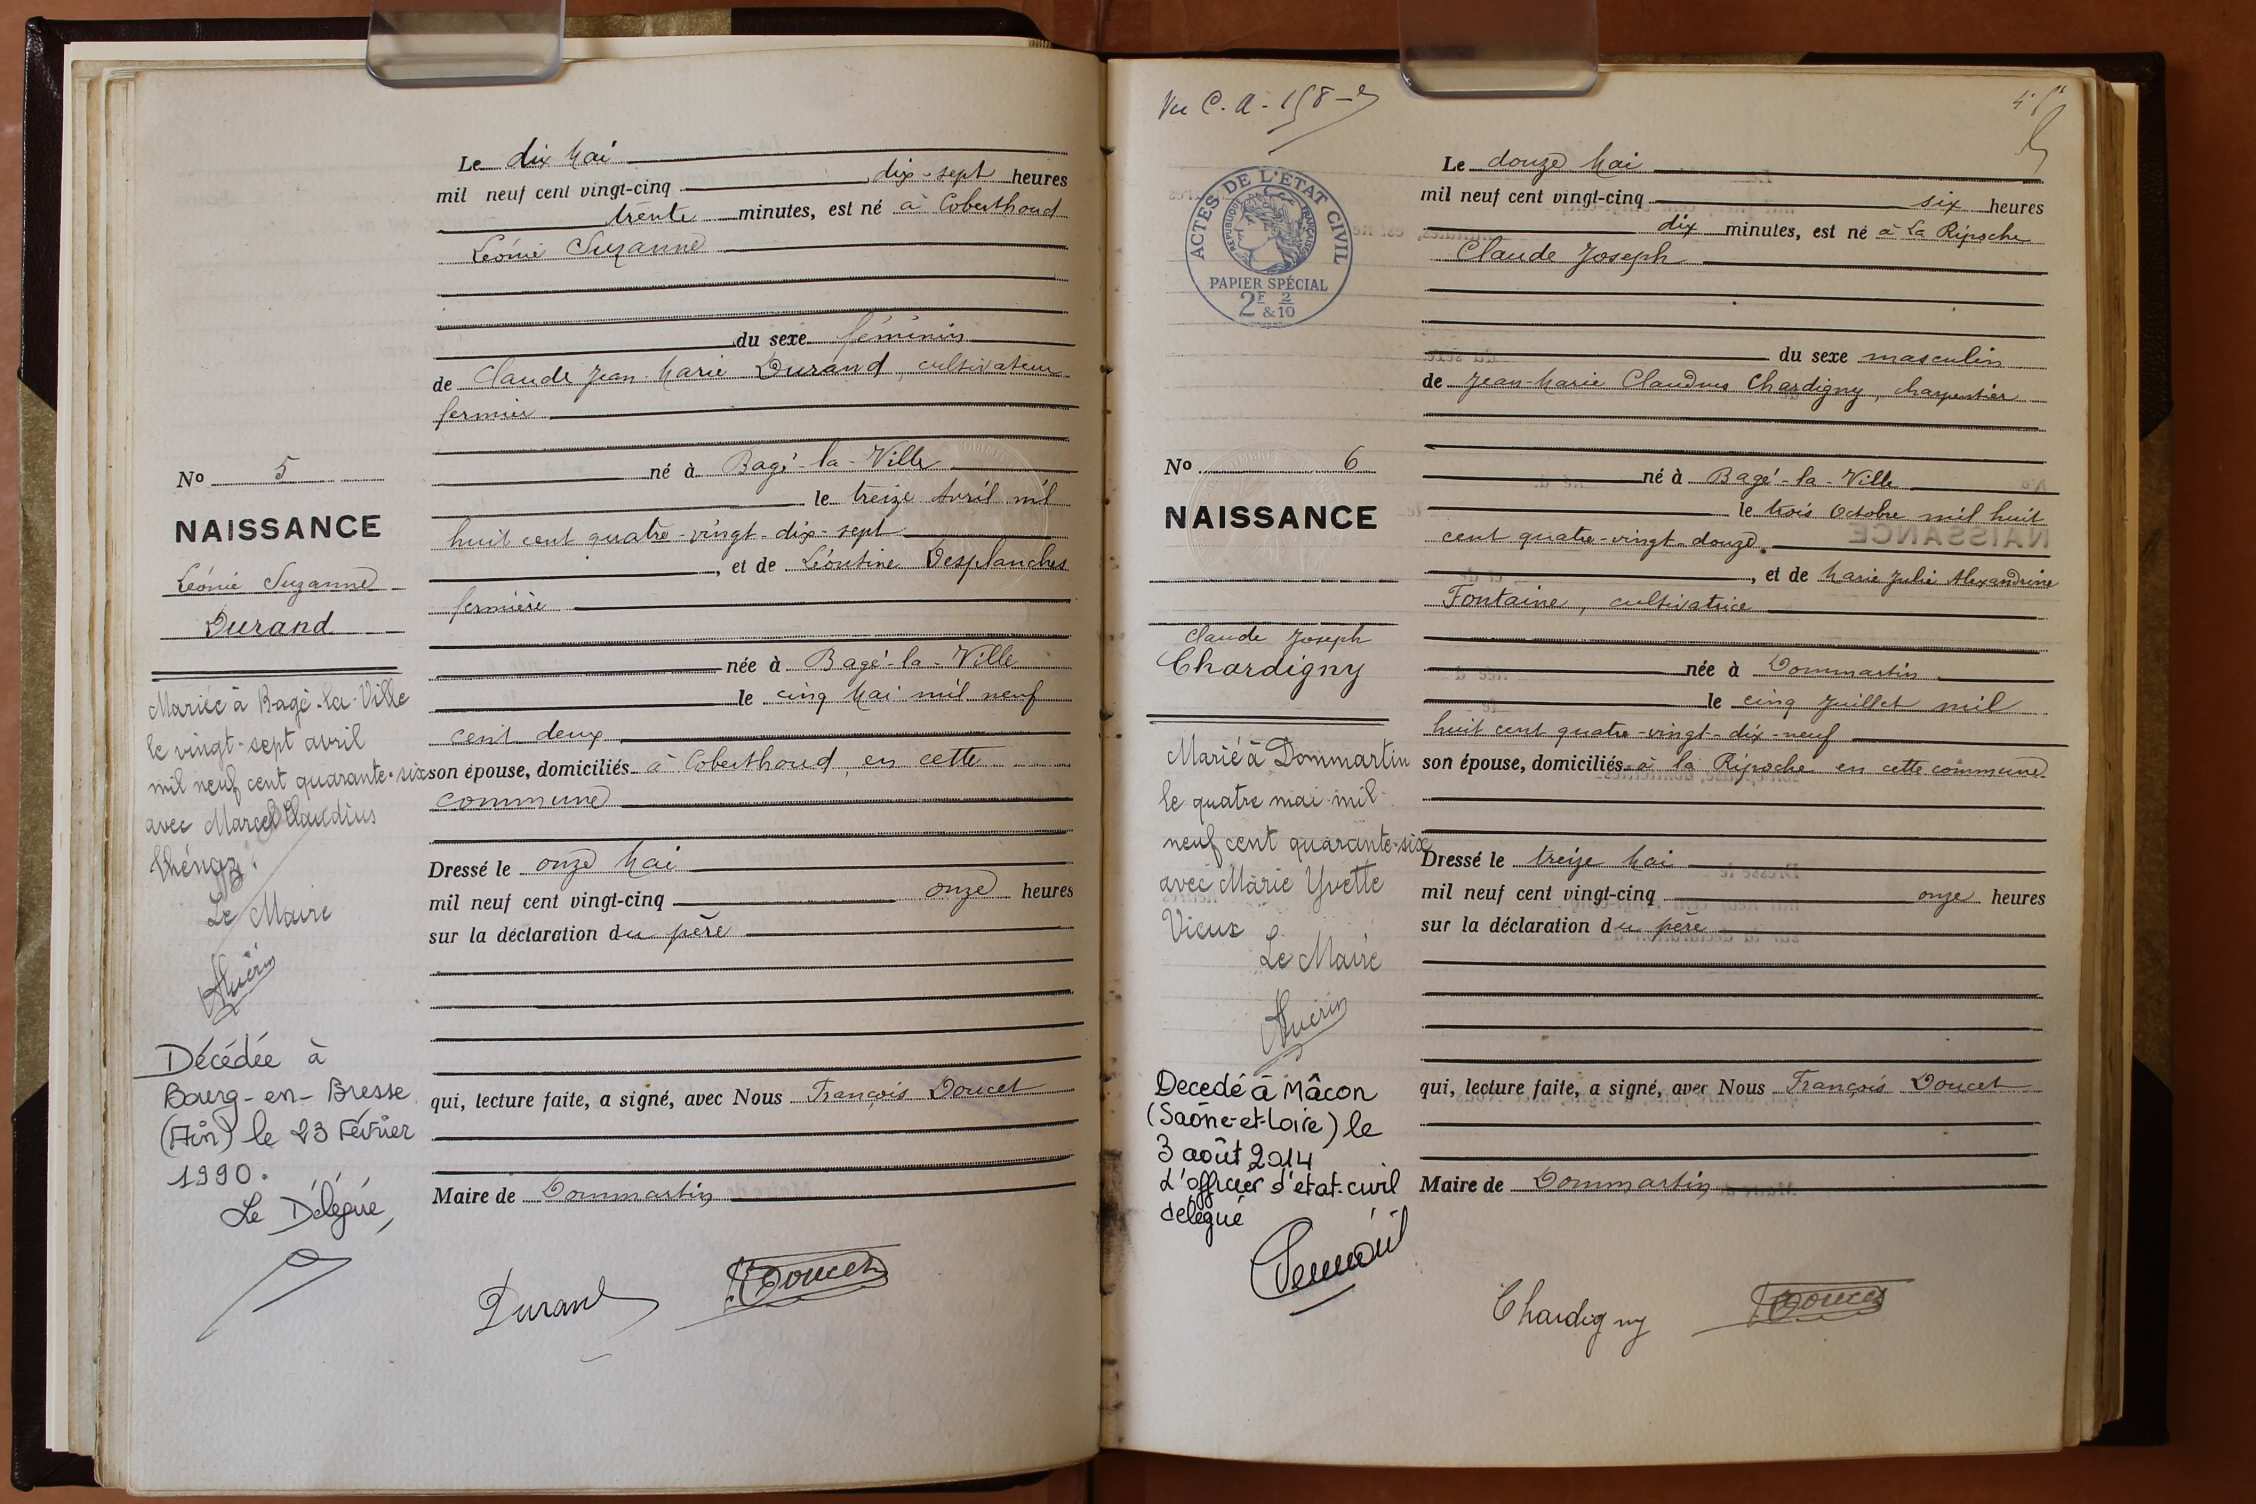 Le dix Mai
mil neuf cent vingt-cinq dix-sept heures
trente minutes, est né à Coberthoud
Léonie Suzanne
du sexe féminin
de Claude Jean-Marie Durand, cultivateur
fermier
né à Bagé-la-Ville
le treize Avril mil
huit cent quatre-vingt-dix-sept
, et de Léontine Desplanches
fermière
née à Bagé-la-Ville
le cinq Mai mil neuf
cent deux
son épouse, domiciliés à Coberthoud, en cette
commune
Dressé le onze Mai
mil neuf cent vingt-cinq onze heures
sur la déclaration du père
qui, lecture faite, a signé, avec Nous François Doucet
Maire de Dommartin
Durand
Doucet
No 5
NAISSANCE
Léonie Suzanne
Durand
Mariée à Bagé-la-Ville
le vingt-sept avril
mil neuf cent quarante-six
avec Marcel Claudius
Le Maire
Guérin
Décédée à
Bourg-en-Bresse
(Ain) le 23 Février
1990.
Le Délégué,
Vu C. A.
ACTES DE L'ETAT CIVIL
REPUBLIQUE FRANÇAISE
PAPIER SPÉCIAL
2F & 2/10
Le douze Mai
mil neuf cent vingt-cinq six heures
dix minutes, est né à La Ripoche
Claude Joseph
du sexe masculin
de Jean-Marie Claudius Chardigny, charpentier
né à Bagé-la-Ville
le trois Octobre mil huit
cent quatre-vingt-douze.
, et de Marie Julie Alexandrine
Fontaine, cultivatrice
née à Dommartin
le cinq Juillet mil
huit cent quatre-vingt-dix-neuf
son épouse, domiciliés à la Ripoche en cette commune.
Dressé le treize Mai
mil neuf cent vingt-cinq onze heures
sur la déclaration du père
qui, lecture faite, a signé, avec Nous François Doucet
Maire de Dommartin
Chardigny
Doucet
No 6
NAISSANCE
Claude Joseph
Chardigny
Marié à Dommartin
le quatre mai mil
neuf cent quarante-six
avec Marie Yvette
Vieux
Le Maire
Guérin
Decedé à Mâcon
(Saône-et-Loire) le
3 août 2014
L'officier d'état-civil
délégué